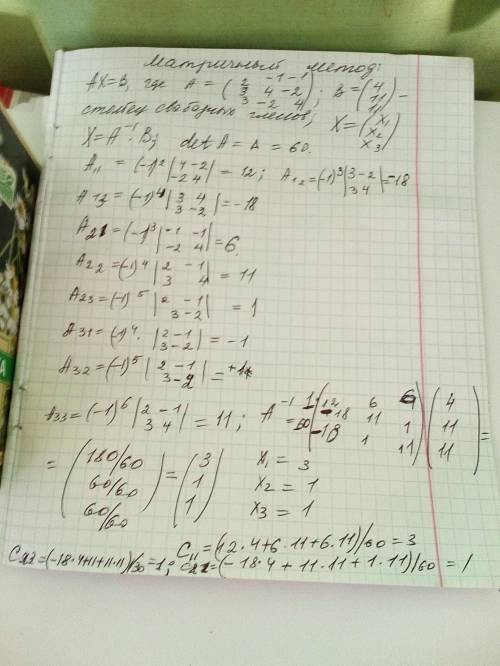 Матричный метод:
AX=B, где A = (2 -1 -1; 3 4 -2; 3 -2 4); B = (4; 11; 11) –
столбец свободных членов; X = (x₁; x₂; x₃)
X = A⁻¹·B; det A = Δ = 60.
A₁₁ = (-1)² |4 -2; -2 4| = 12; A₁₂ = (-1)³ |3 -2; 3 4| = -18
A₁₃ = (-1)⁴ |3 4; 3 -2| = -18
A₂₁ = (-1)³ |-1 -1; -2 4| = 6.
A₂₂ = (-1)⁴ |2 -1; 3 4| = 11
A₂₃ = (-1)⁵ |2 -1; 3 -2| = 1
A₃₁ = (-1)⁴ · |2 -1; 3 -2| = -1
A₃₂ = (-1)⁵ |2 -1; 3 -2| = +1
A₃₃ = (-1)⁶ |2 -1; 3 4| = 11; A⁻¹ = 1/60 (12 6 6; -18 11 1; -18 1 11) (4; 11; 11) =
= (180/60; 60/60; 60/60) = (3; 1; 1) x₁ = 3
x₂ = 1
x₃ = 1
C₁₁ = (12·4+6·11+6·11)/60 = 3
=(-18·4+11+11·11)/60 = 1; C₂₁ = (-18·4+11·11+1·11)/60 = 1